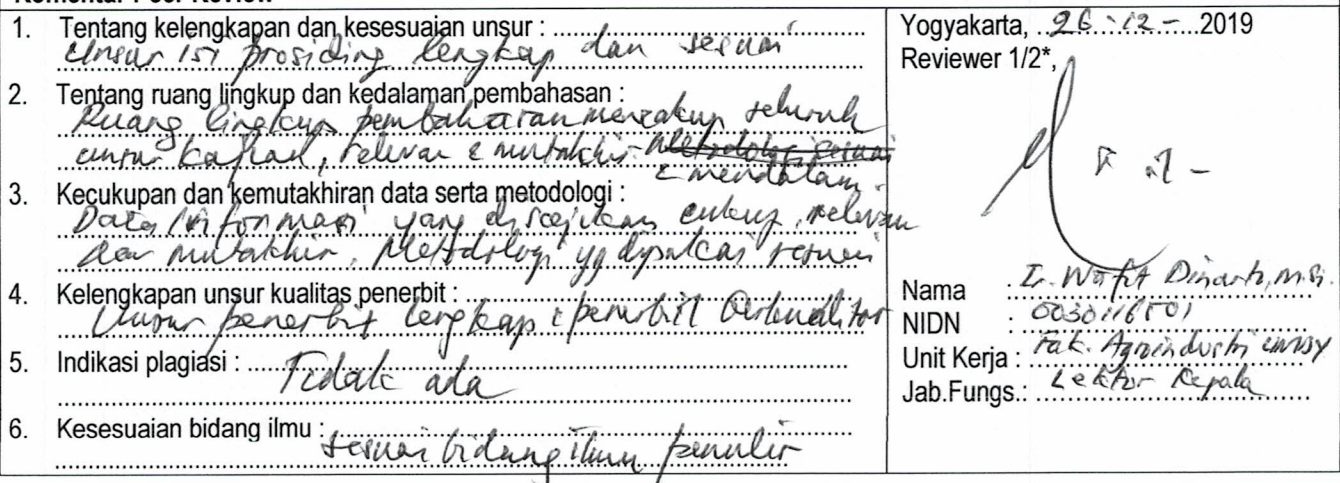 1. Tentang kelengkapan dan kesesuaian unsur :
Unsur isi prosiding lengkap dan sesuai
2. Tentang ruang lingkup dan kedalaman pembahasan :
Ruang lingkup pembahasan mencakup seluruh
unsur kajian, relevan & mutakhir. Metodologi sesuai
& mendalam.
3. Kecukupan dan kemutakhiran data serta metodologi :
Data/informasi yang disajikan cukup, relevan
dan mutakhir. Metodologi yg dipakai sesuai
4. Kelengkapan unsur kualitas penerbit :
Unsur penerbit lengkap & penerbit berkualitas
5. Indikasi plagiasi : Tidak ada
6. Kesesuaian bidang ilmu :
sesuai bidang ilmu penulis
Yogyakarta, 26 - 12 - 2019
Reviewer 1/2*,
Nama : Ir. Wafit Dinarto, M.Si.
NIDN : 0030116501
Unit Kerja : Fak. Agroindustri UMBY
Jab.Fungs.: Lektor Kepala